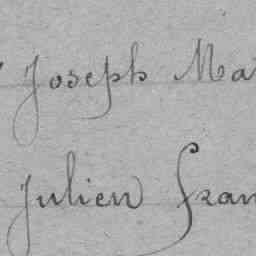 Joseph Ma
Julien Fran